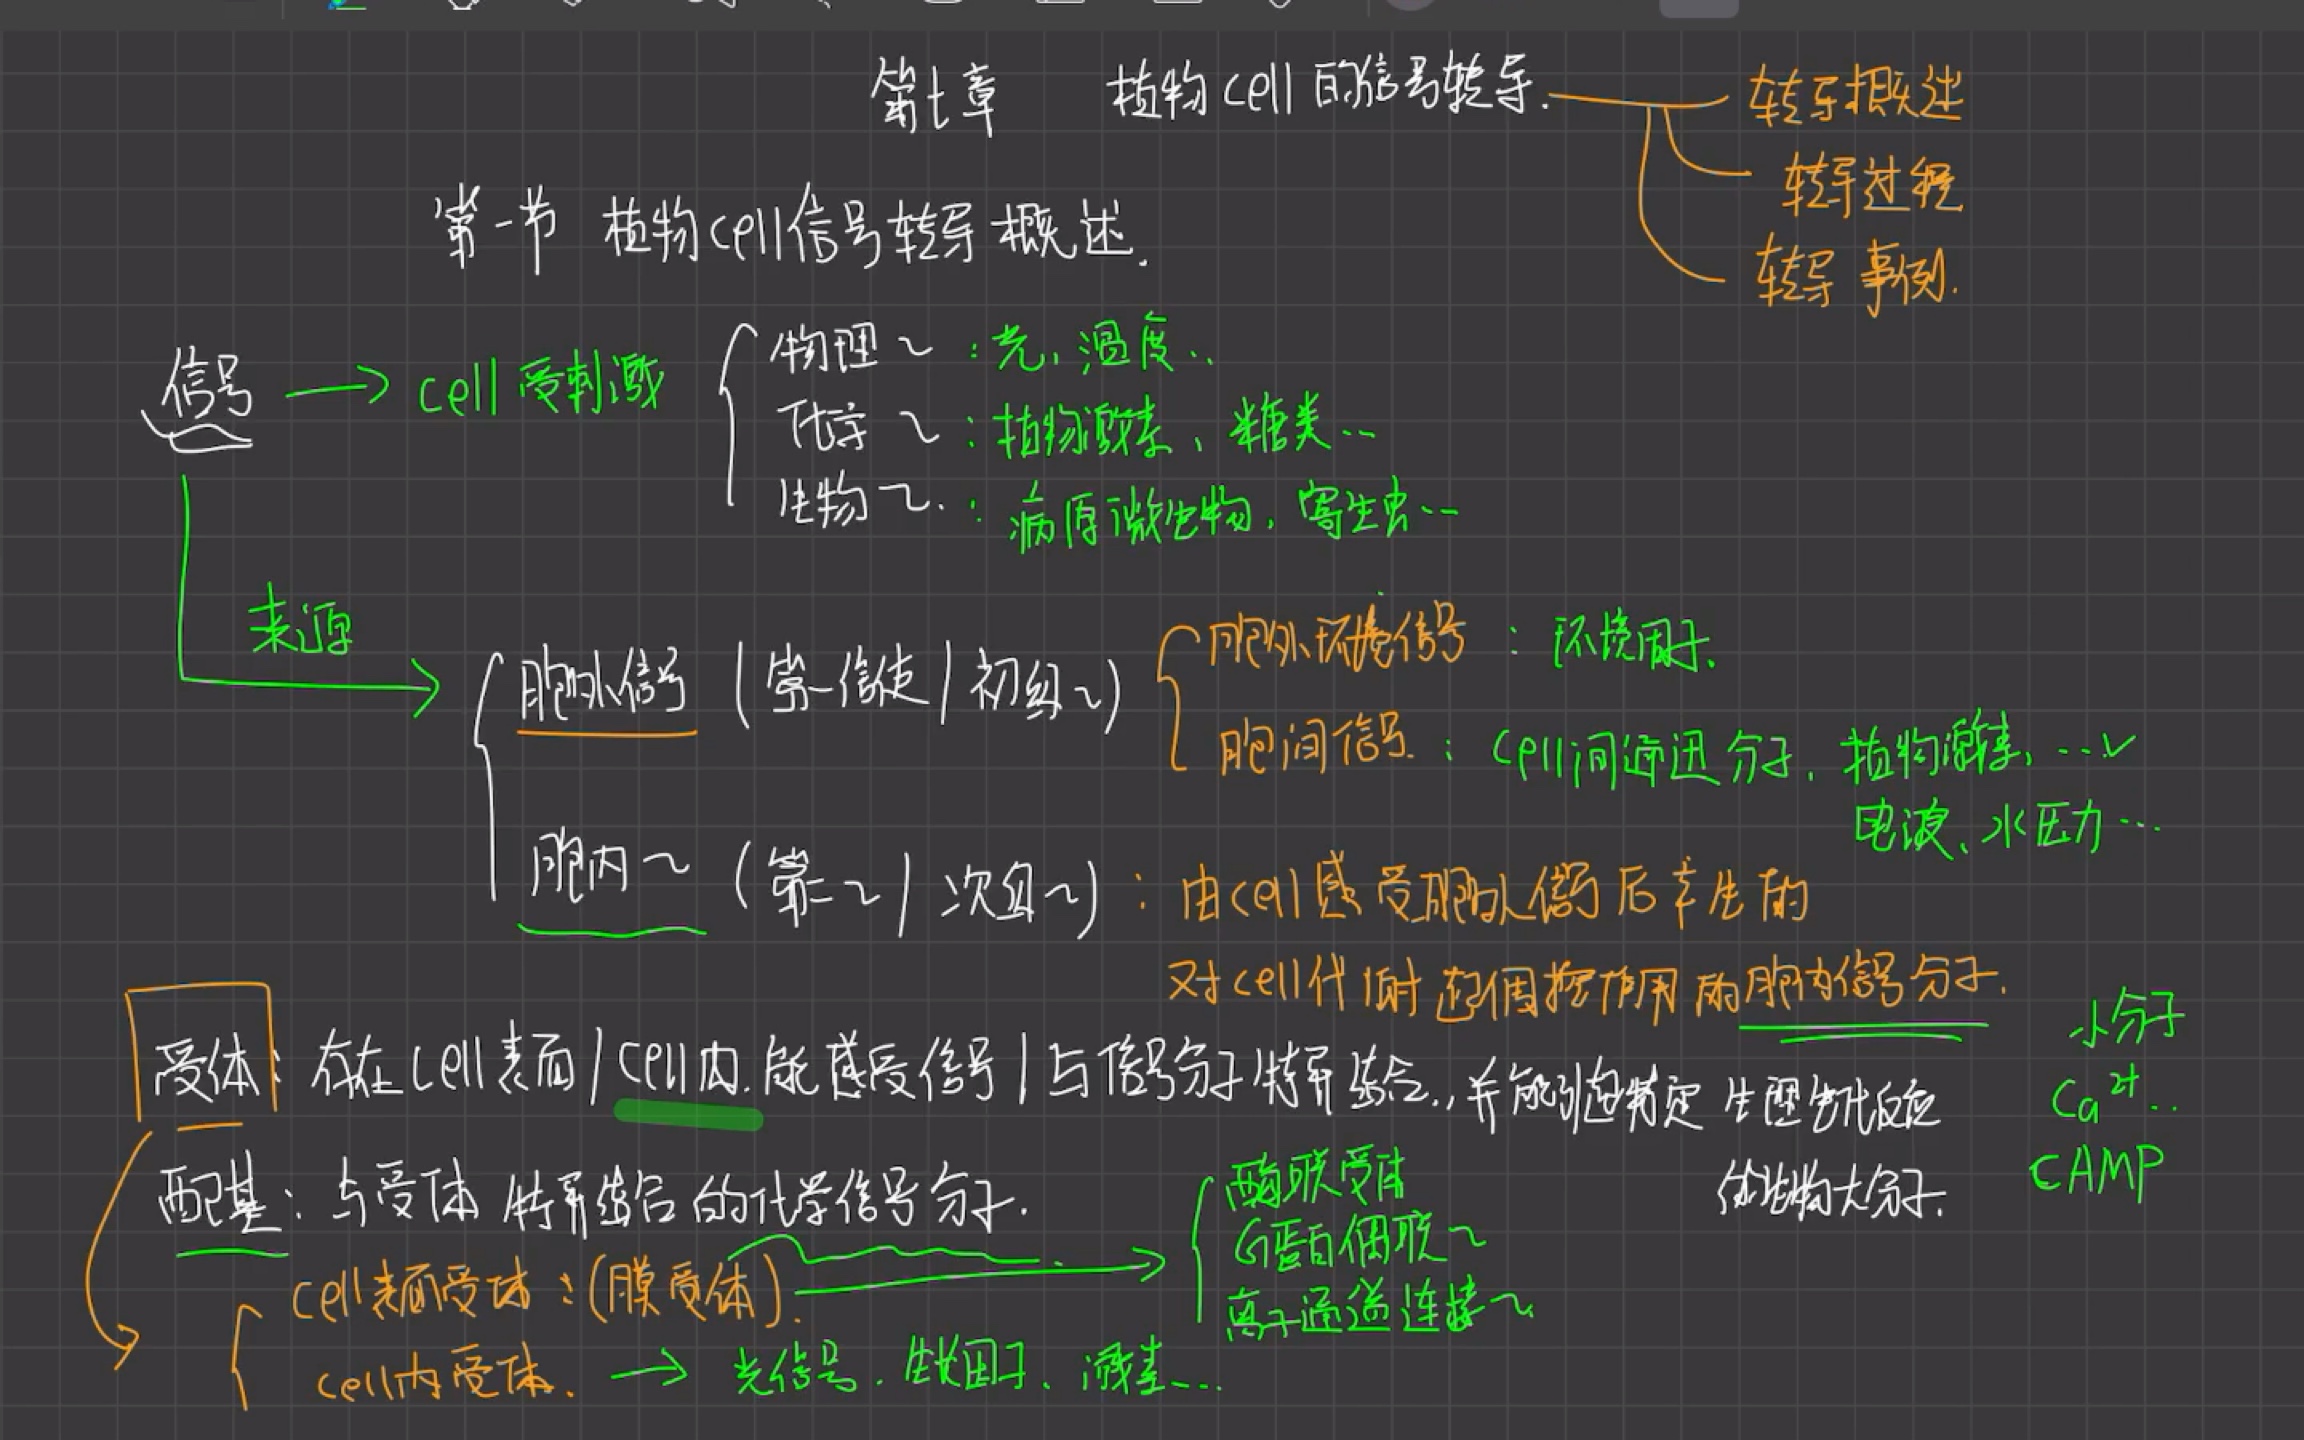 第七章 植物cell的信号转导.
转导概述
转导过程
转导事例.
第一节 植物cell信号转导概述.
信号 → cell受刺激
物理~ : 光, 温度..
化学~ : 植物激素, 糖类...
生物~. : 病原微生物, 寄生虫...
来源
胞外信号 (第一信使/初级~)
胞外环境信号 : 环境因子.
胞间信号. : cell间通迅分子, 植物激素, ...✓
电波、水压力...
胞内~ (第二~/次级~) : 由cell感受胞外信号后产生的
对cell代谢起调控作用的胞内信号分子.
小分子
Ca²⁺..
CAMP
受体: 存在cell表面/cell内.能感受信号/与信号分子特异结合,并能引起特定生理生化反应
的生物大分子.
配基: 与受体特异结合的化学信号分子.
cell表面受体: (膜受体).
酶联受体
G蛋白偶联~
离子通道连接~
cell内受体. → 光信号. 生长因子、激素...